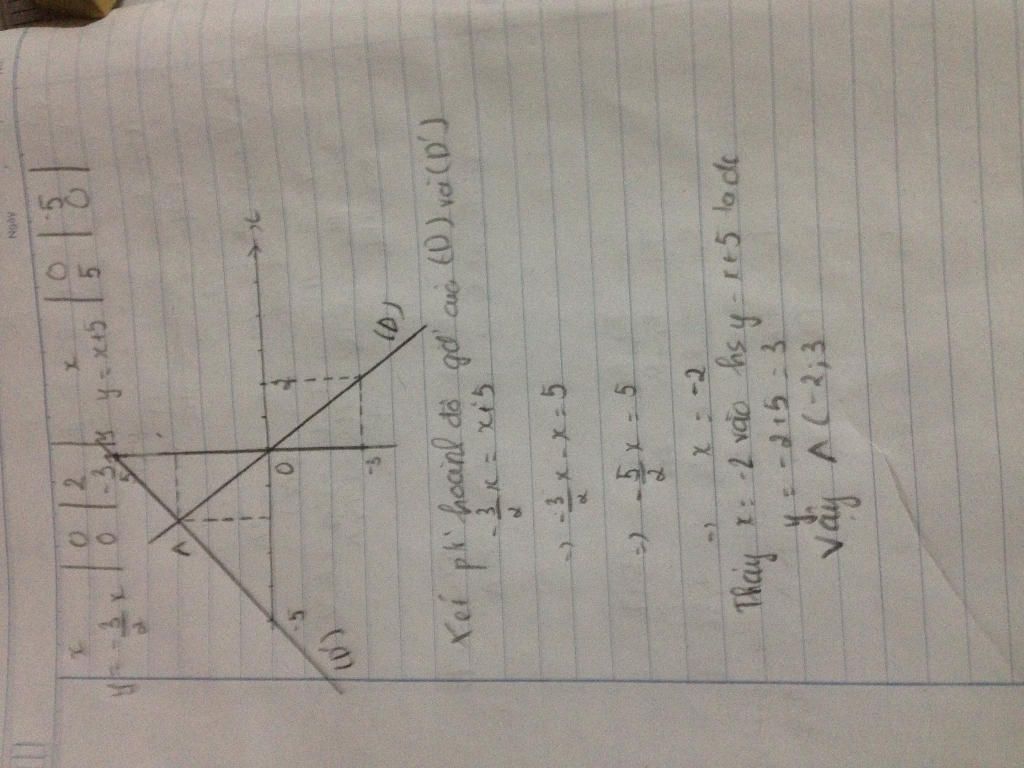 NGÀY
x | 0 | 2 | x | 0 | -5 |
y = -3/2 x | 0 | -3 | y = x+5 | 5 | 0 |
y
5
A
x
-5
0
2
-3
(D')
(D)
Xét pt hoành độ gđ của (D) và (D')
-3/2 x = x+5
=) -3/2 x - x = 5
=) -5/2 x = 5
=) x = -2
Thay x = -2 vào hs y = x+5 ta dc
y = -2+5 = 3
Vậy A (-2;3